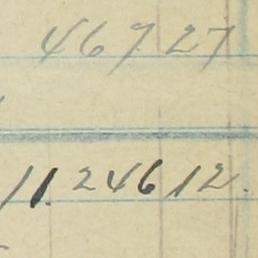 467.27
11.246.12.